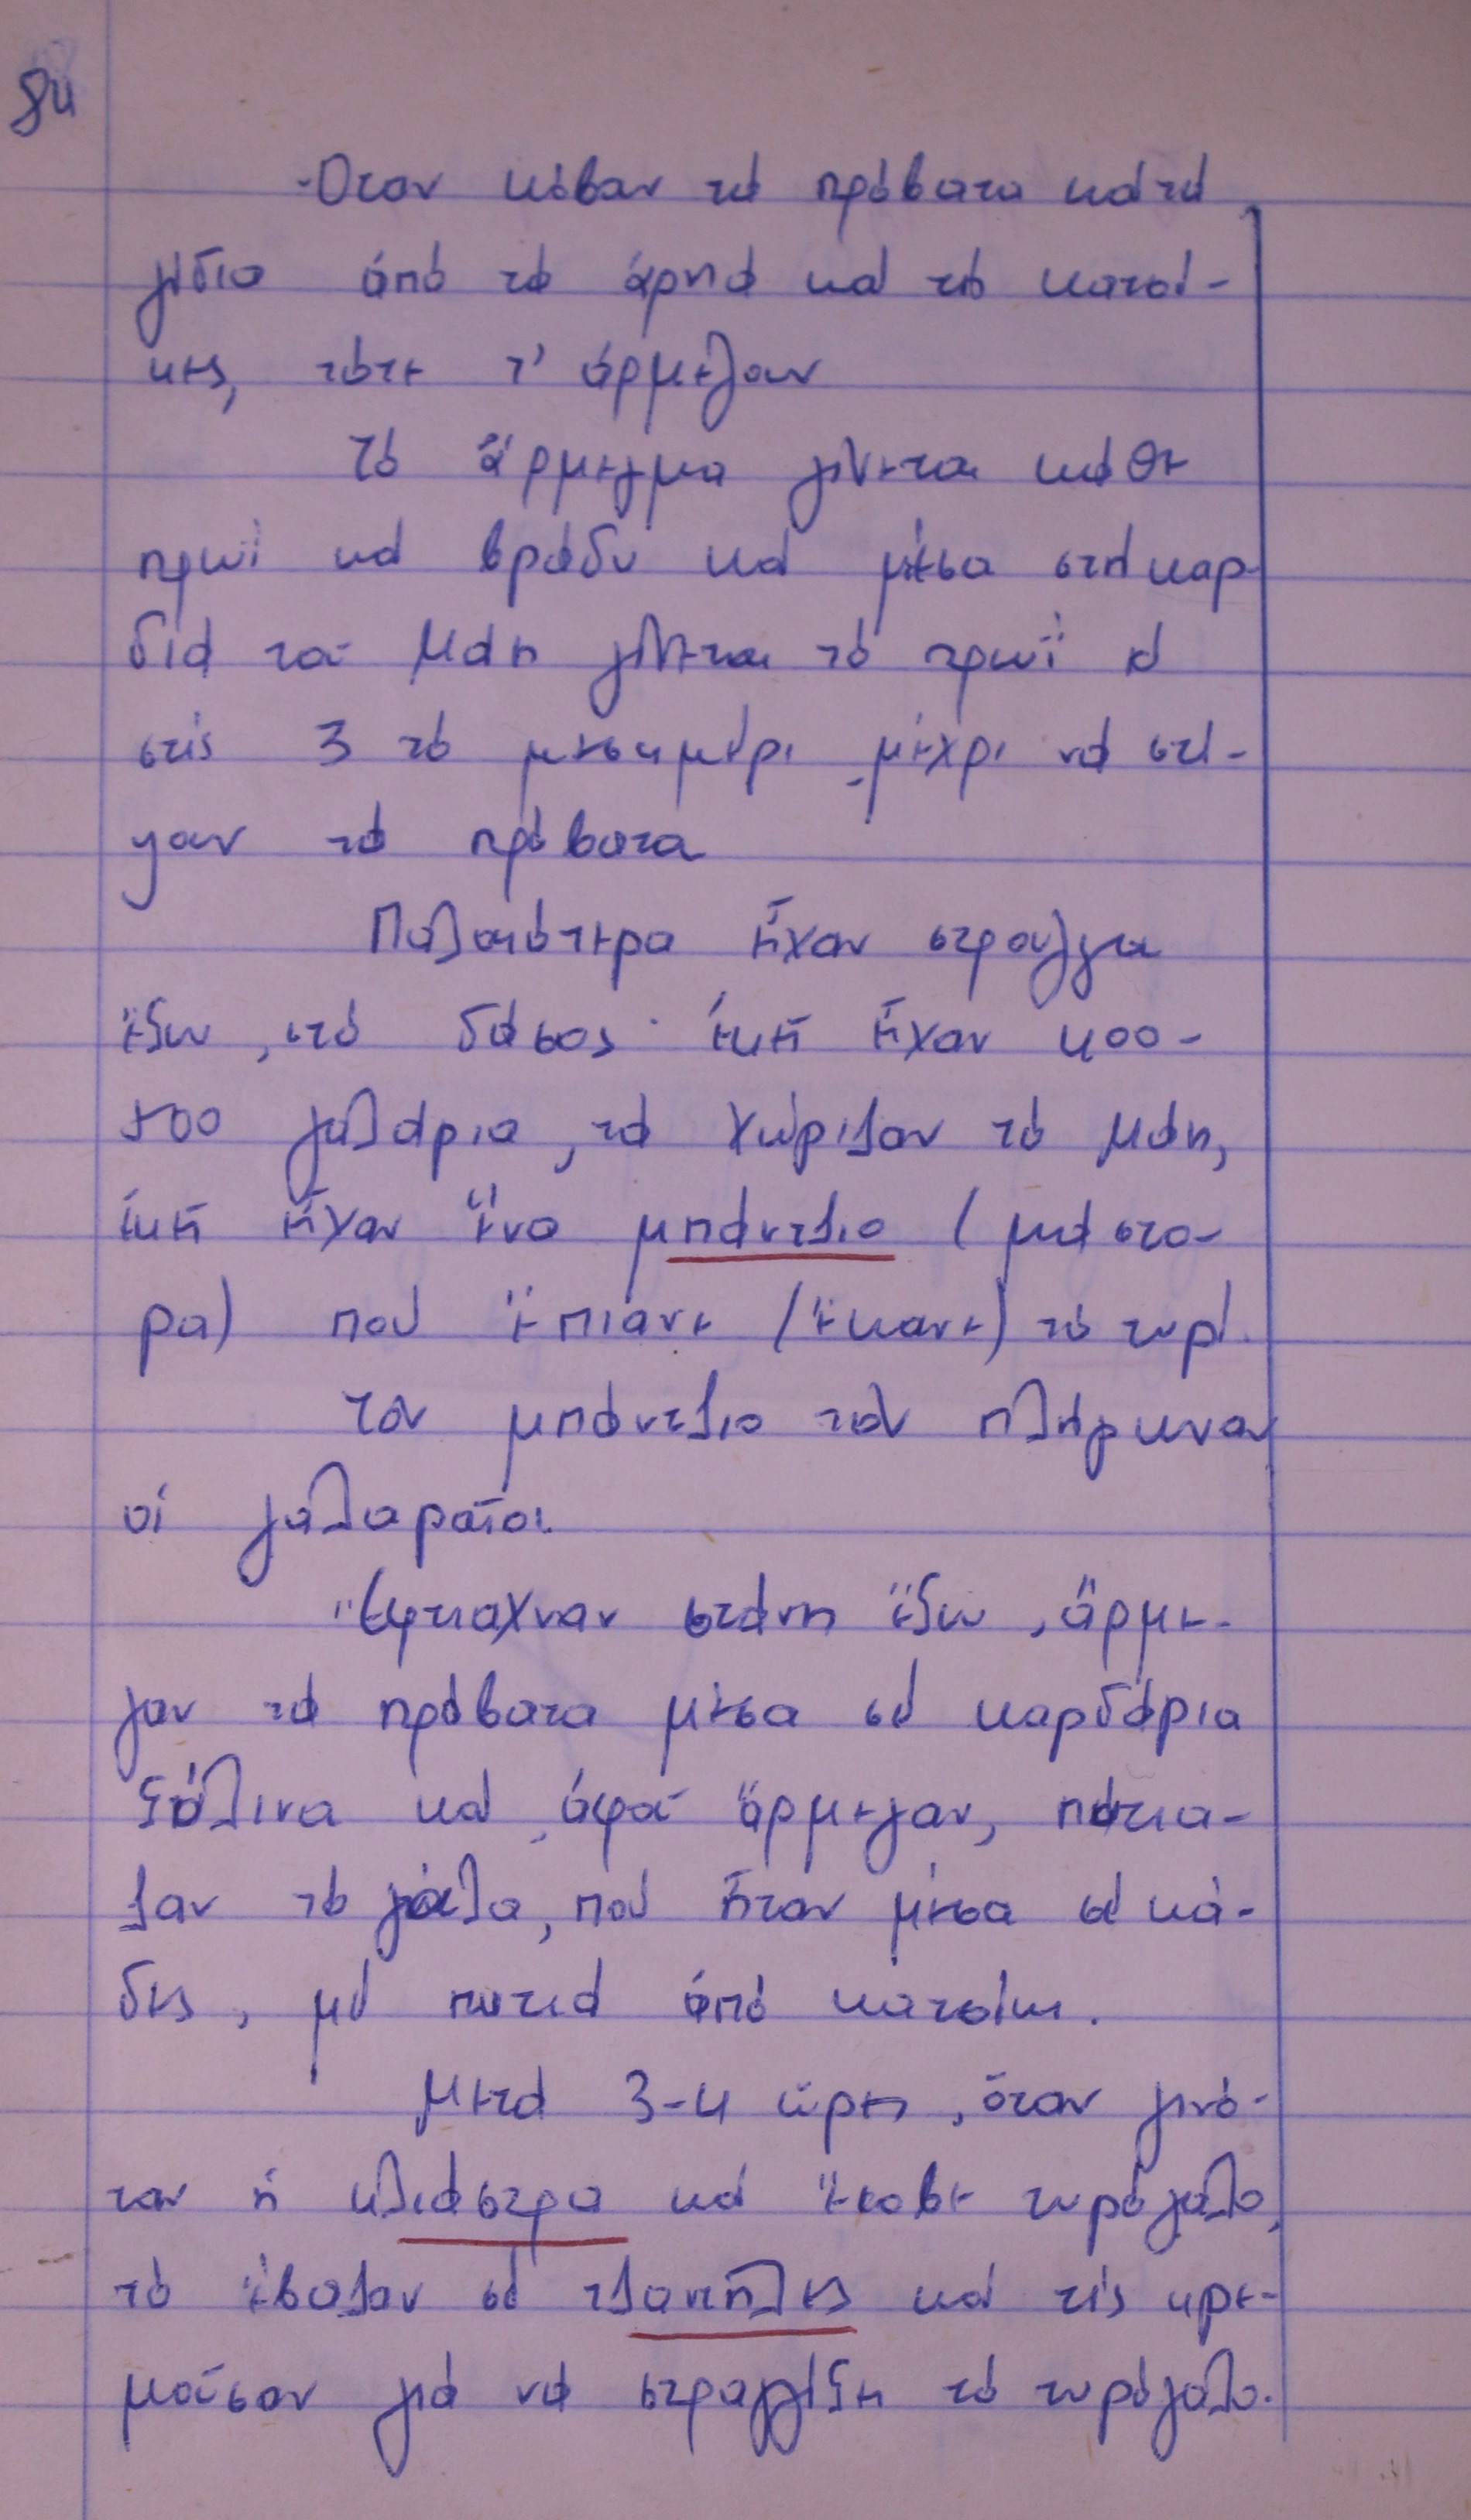 84
Ὅταν κόβαν τά πρόβατα καί τά
γίδια ἀπό τά ἀρνιά καί τά κατσί-
κες, τότε τ' ἀρμέγουν
Τό ἄρμεγμα γίνεται κάθε
πρωΐ καί βράδυ καί μέσα στή καρ-
διά τοῦ Μάη γίνεται τό πρωΐ καί
στίς 3 τό μεσημέρι, μέχρι νά στί-
γουν τά πρόβατα
Παλαιότερα εἶχαν στρούγγα
ἔξω, στό δάσος· ἐκεῖ εἶχαν 400-
500 γαλάρια, τά χώριζαν τό Μάη,
ἐκεῖ εἶχαν ἕνα μπάντζιο (μάστο-
ρα) πού ἔπιανε (ἔκανε) τό τυρί.
Τόν μπάντζιο τόν πλήρωναν
οἱ γαλαραῖοι.
Ἔφτιαχναν στάνη ἔξω, ἄρμε-
γαν τά πρόβατα μέσα σέ καρδάρια
ξύλινα καί, ἀφοῦ ἄρμεγαν, πύτια-
ζαν τό γάλα, πού ἦταν μέσα σέ κά-
δες, μέ πυτιά ἀπό κατσίκι.
Μετά 3-4 ὧρες, ὅταν γινό-
ταν ἡ κλιάστρα καί ἔκοβε τυρόγαλο,
τό ἔβαζαν σέ τζαντῆλες καί τίς κρε-
μοῦσαν γιά νά στραγγίξη τό τυρόγαλο.